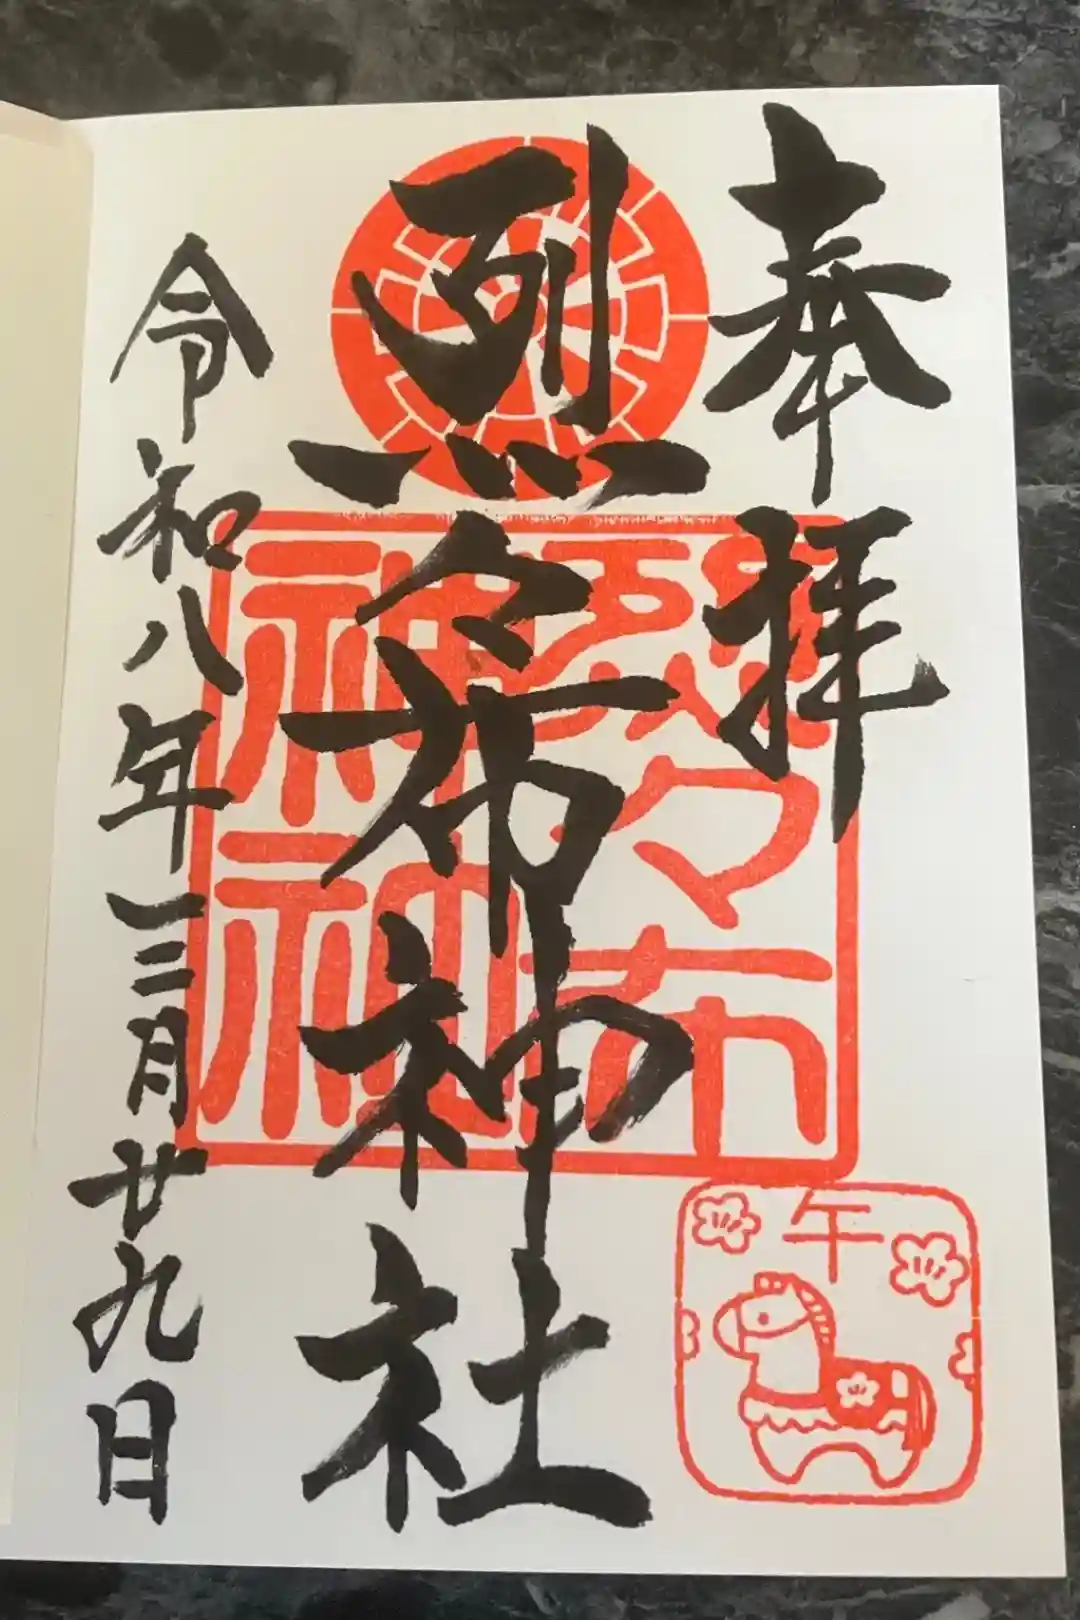 奉拝
烈々布神社
令和八年三月廿九日
烈々布
神
午